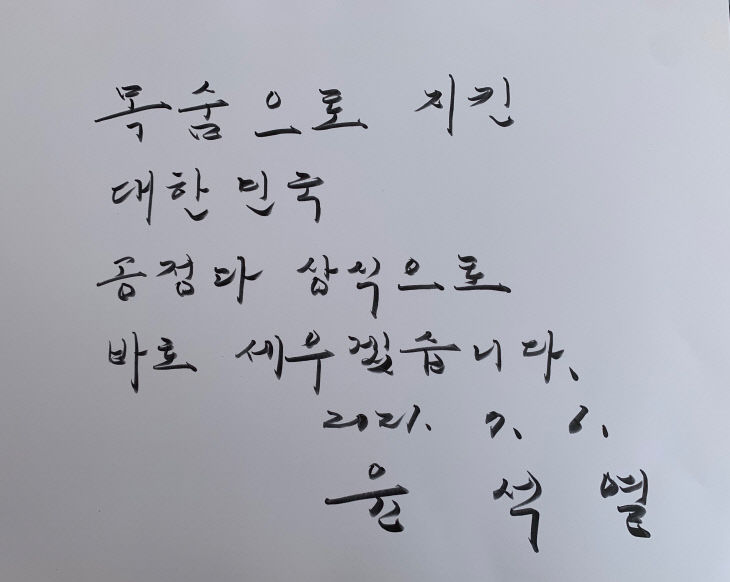 목숨으로 지킨
대한민국
공정과 상식으로
바로 세우겠습니다.
2021. 7. 6.
윤석열